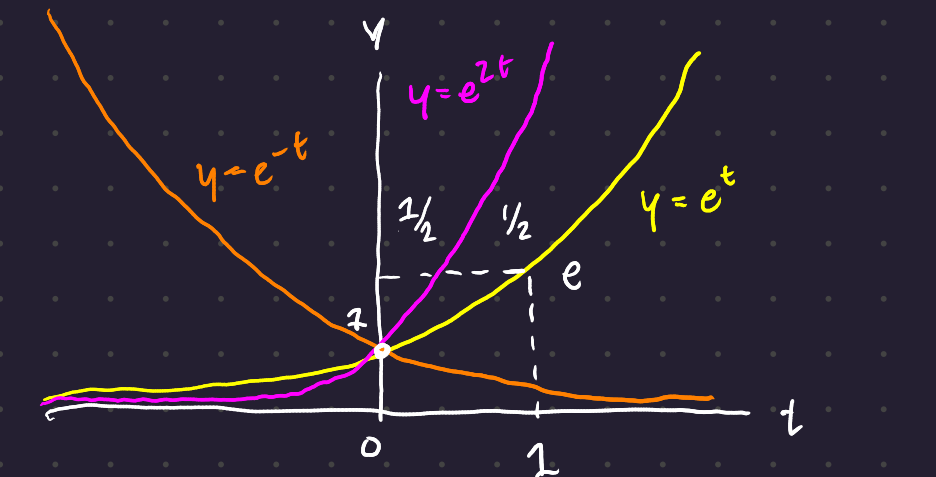 y
y=e^{2t}
y=e^{-t}
y=e^t
1/2
1/2
e
1
t
0
1